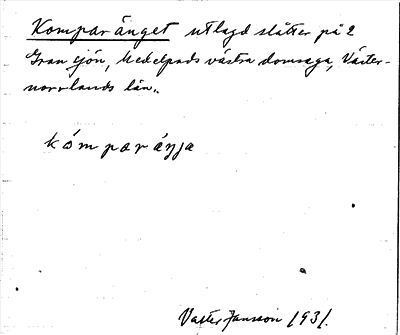 Komparänget utlagd slåtter på 2
Gransjön, Medelpads västra domsaga, Väster-
norrlands län.
kómparáŋja
Valter Jansson 1931.